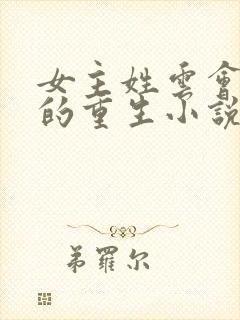 女主姓雲會
的重生小說
弟羅尔